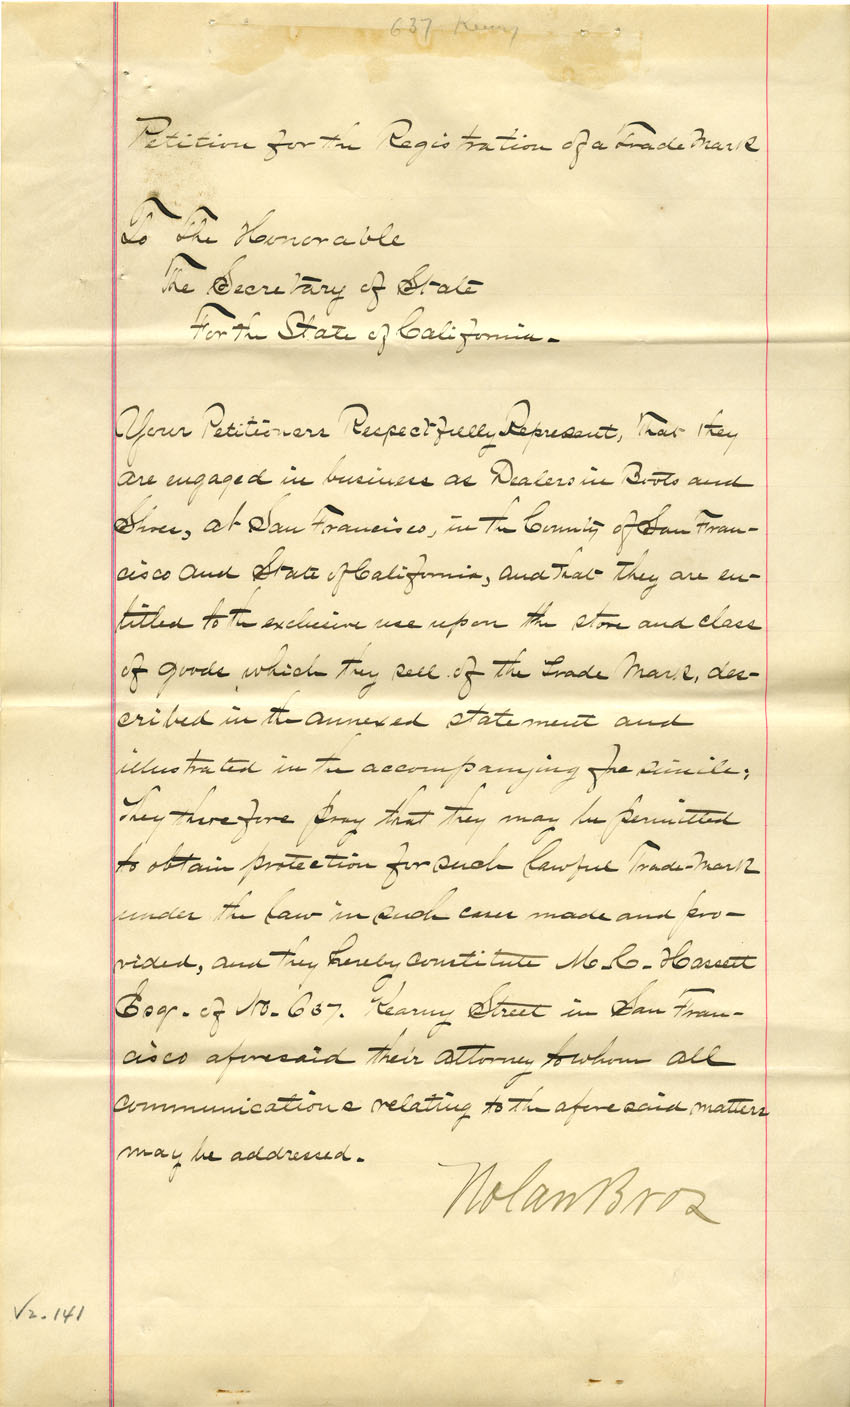 637 Keary
Petition for the Registration of a Trade Mark
To The Honorable
The Secretary of State
For the State of California.
Your Petitioners Respectfully Represent, That they
are engaged in business as Dealers in Boots and
Shoes, at San Francisco, in the County of San Fran-
cisco and State of California, and that they are en-
titled to the exclusive use upon the store and class
of goods which they sell of the Trade Mark, des-
cribed in the annexed statement and
illustrated in the accompanying facsimile;
They therefore pray that they may be permitted
to obtain protection for such lawful Trade-Mark
under the law in such cases made and pro-
vided, and they hereby constitute M. C. Hassett
Esqr. of No. 637. Kearny Street in San Fran-
cisco aforesaid their attorney to whom all
communications relating to the aforesaid matters
may be addressed.
Nolan Bros
V2.141